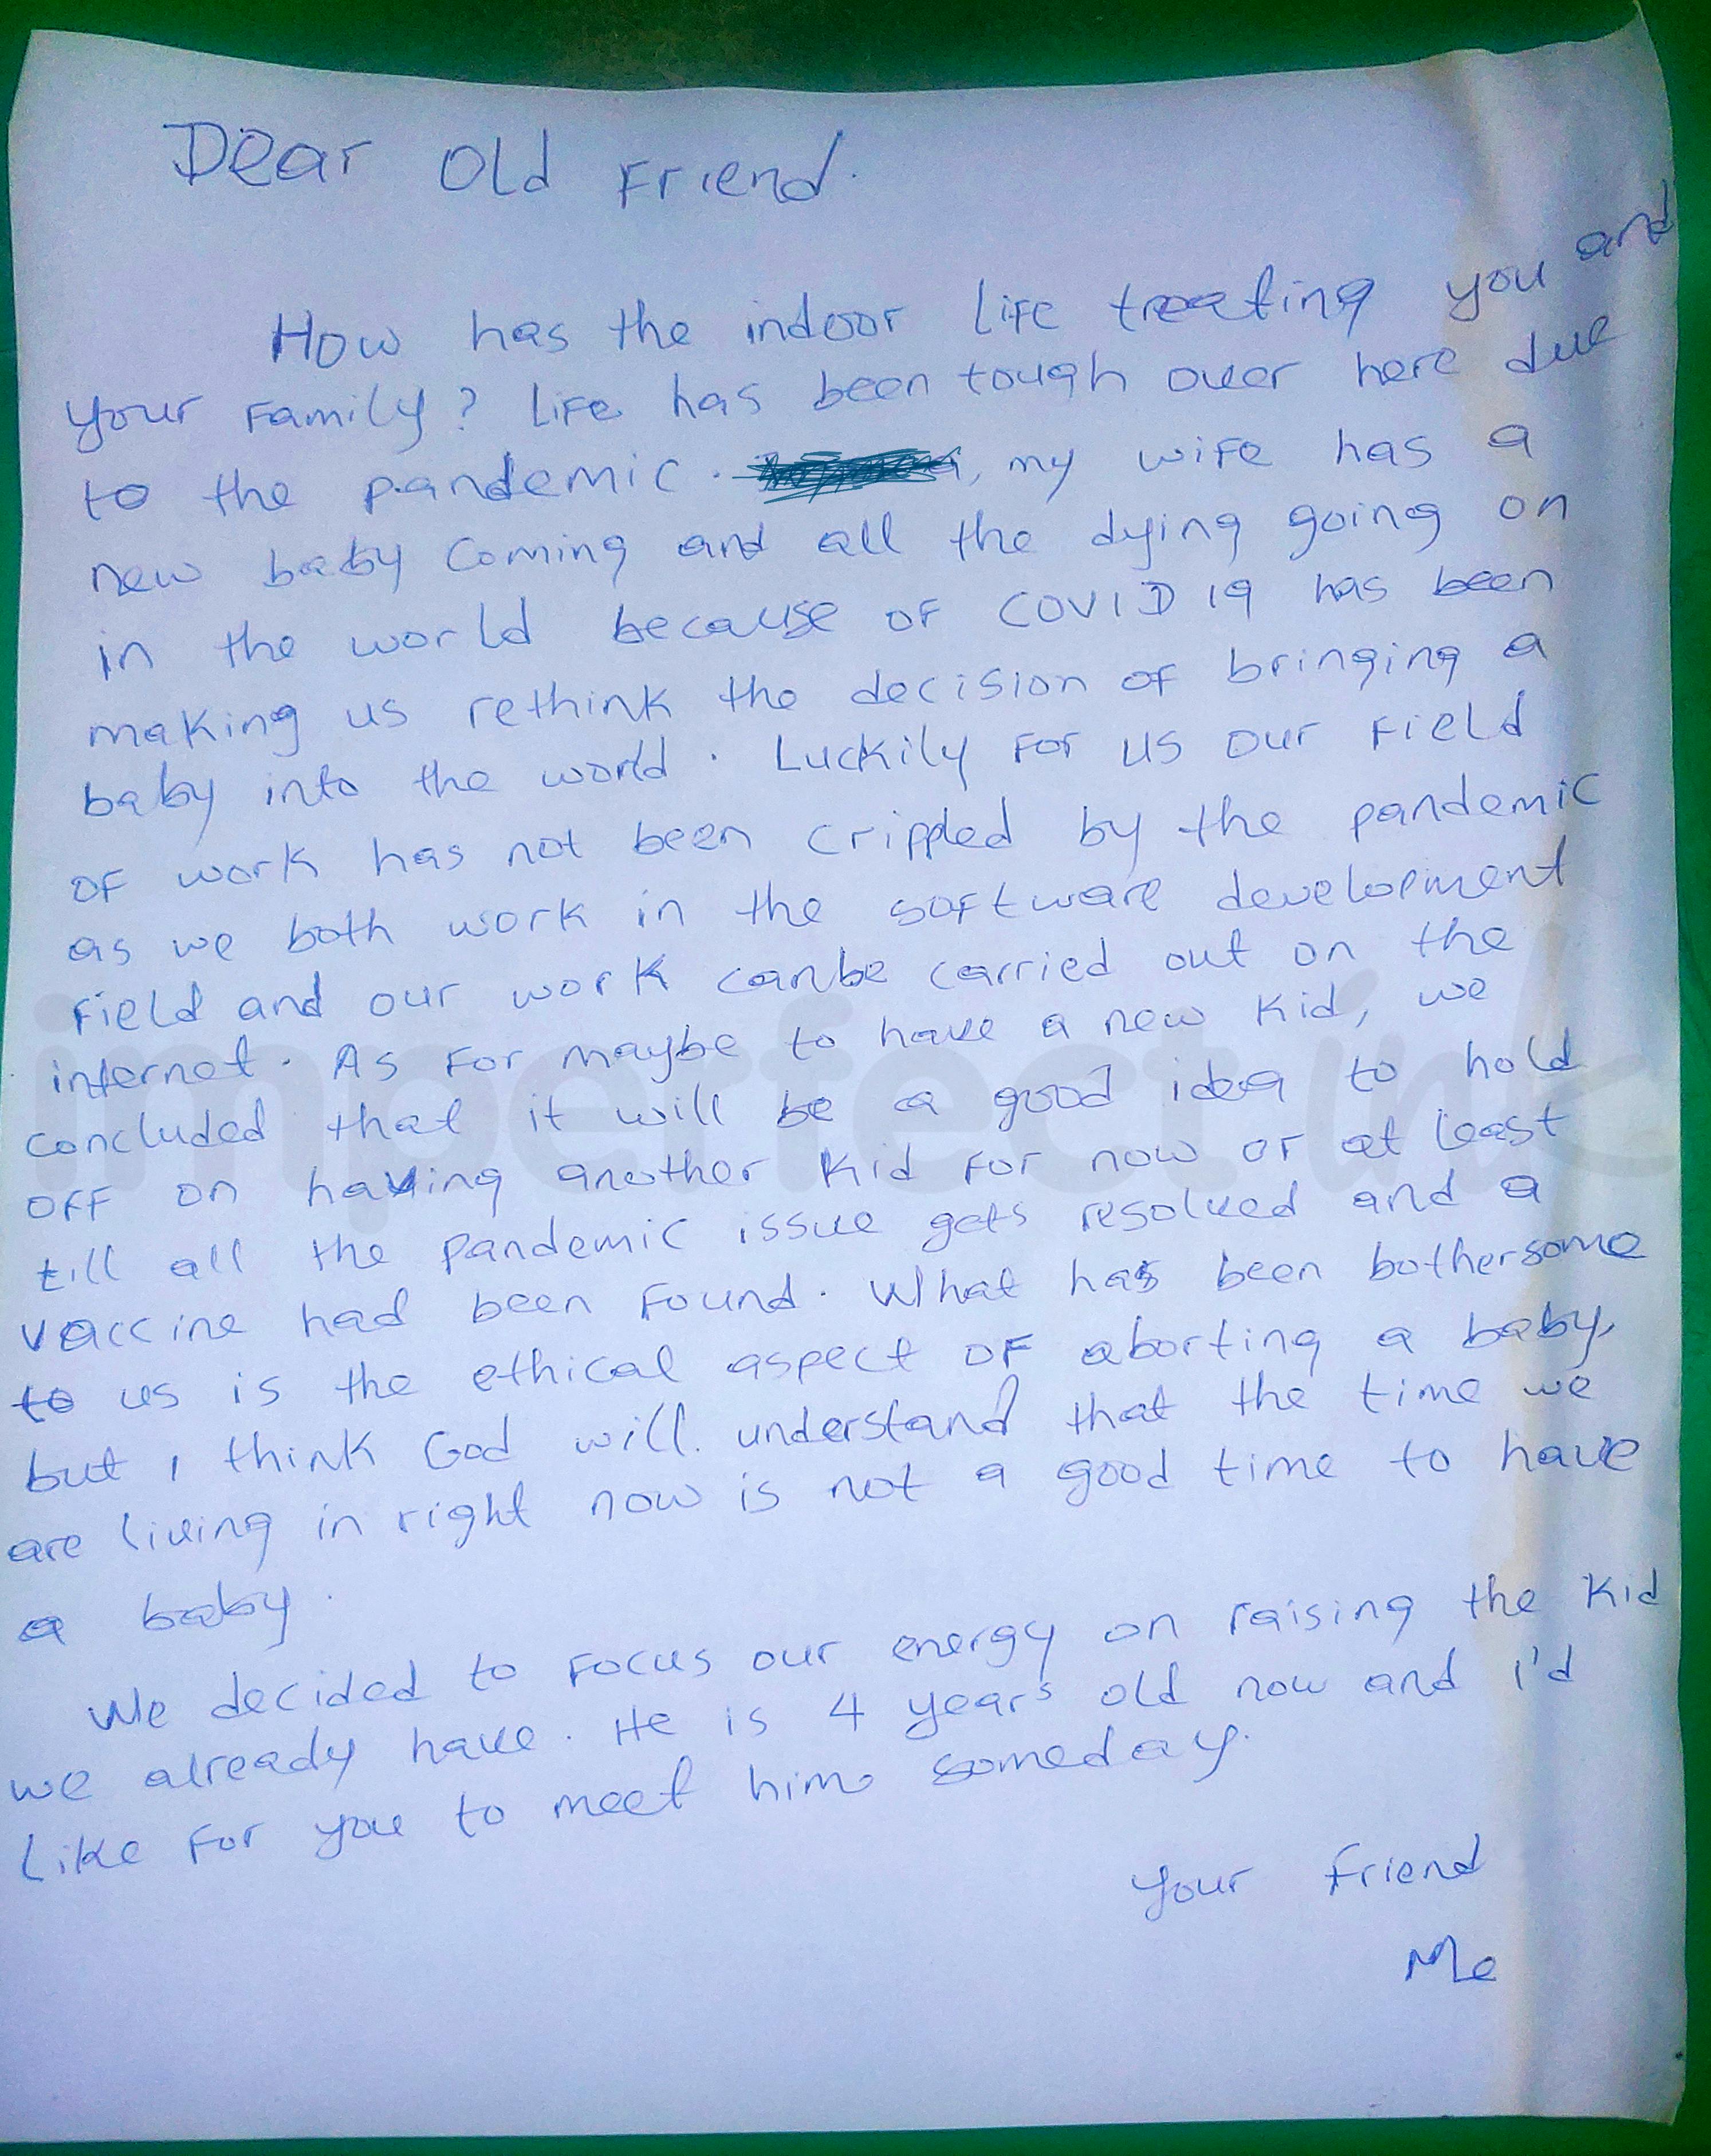 Dear Old Friend.
How has the indoor life treating you and
your Family? Life has been tough over here due
to the pandemic. , my wife has a
new baby coming and all the dying going on
in the world because of COVID 19 has been
making us rethink the decision of bringing a
baby into the world. Luckily for us our field
of work has not been crippled by the pandemic
as we both work in the software development
field and our work canbe carried out on the
internet. As for maybe to have a new kid, we
concluded that it will be a good idea to hold
off on having another kid for now or at least
till all the pandemic issue gets resolved and a
vaccine had been found. What has been bothersome
to us is the ethical aspect of aborting a baby,
but I think God will understand that the time we
are living in right now is not a good time to have
a baby.
We decided to focus our energy on raising the kid
we already have. He is 4 years old now and I'd
Like for you to meet him someday.
Your friend
Me
imperfect ink